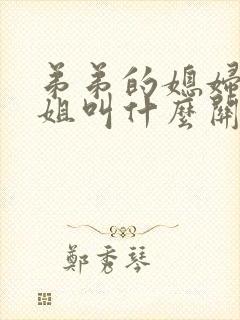 弟弟的媳婦
姐叫什麼關
鄭秀琴